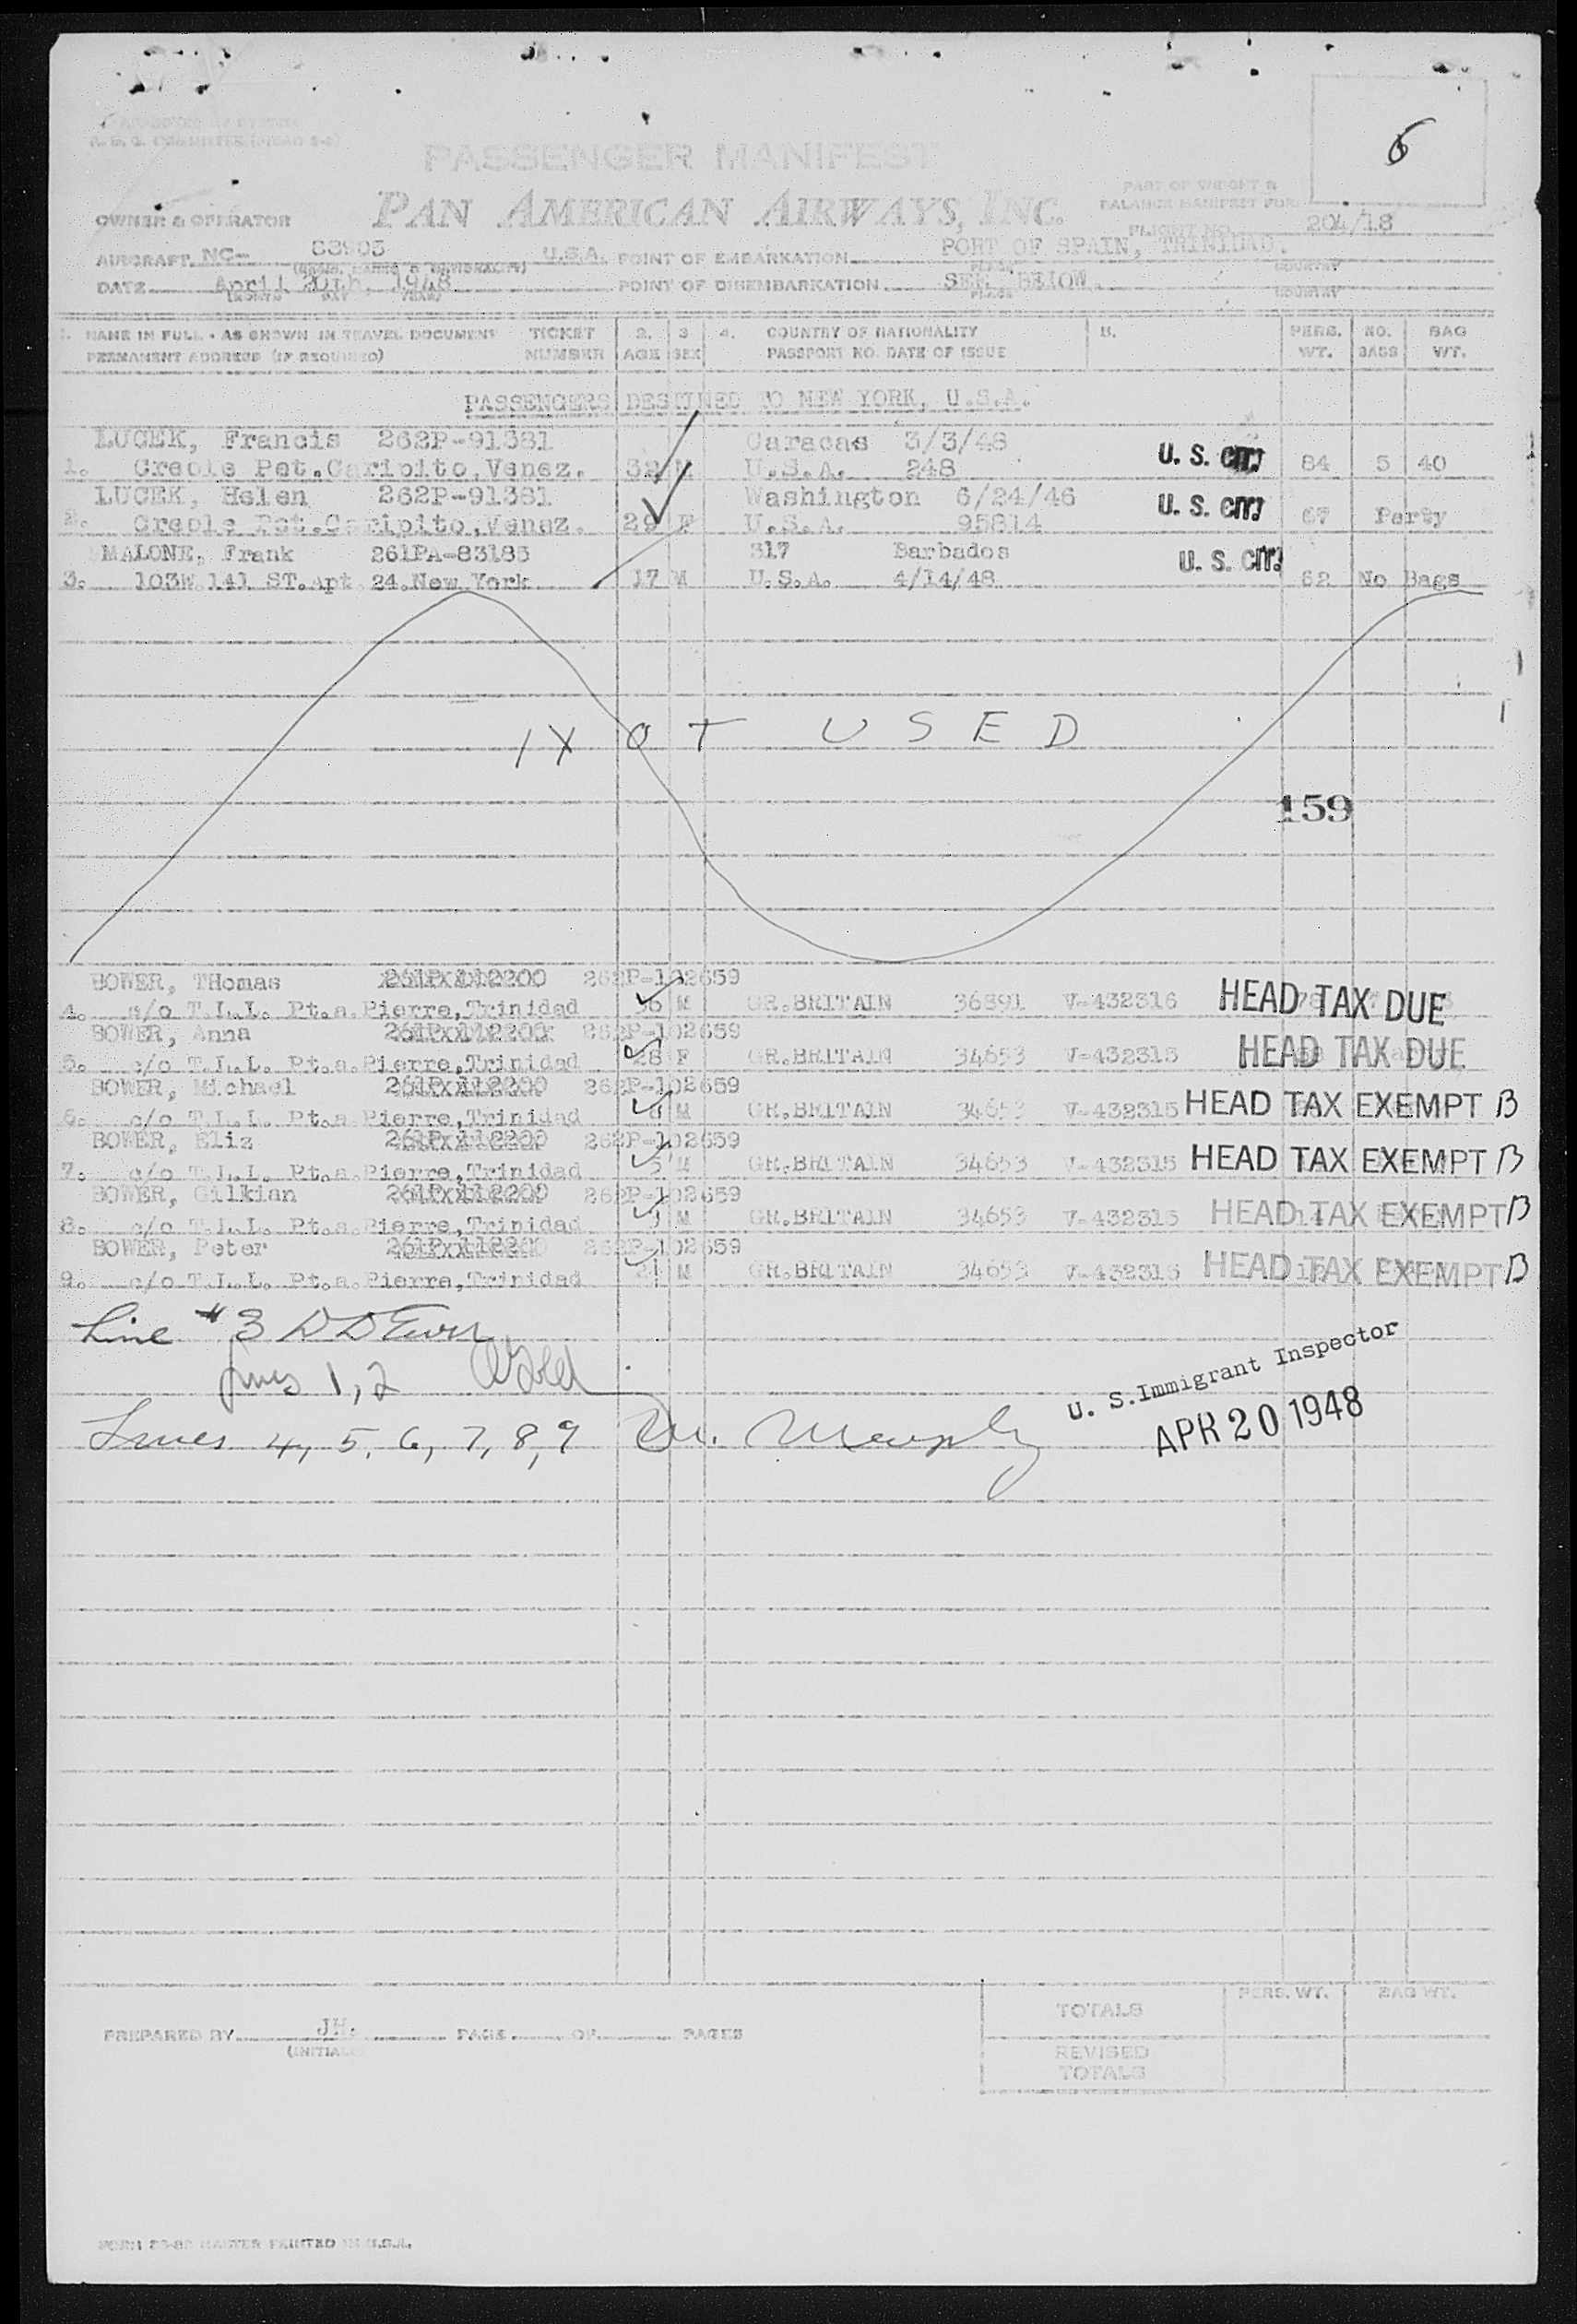 6
PASSENGER MANIFEST
PAN AMERICAN AIRWAYS, INC.
PART OF WEIGHT &
BALANCE MANIFEST FOR
FLIGHT NO. 204/18
OWNER & OPERATOR
AIRCRAFT NC- 88903 U.S.A. POINT OF EMBARKATION PORT OF SPAIN, TRINIDAD.
PLACE COUNTRY
DATE April 20th, 1948 POINT OF DISEMBARKATION SEE BELOW
(MONTH DAY YEAR) PLACE COUNTRY
1. NAME IN FULL - AS SHOWN IN TRAVEL DOCUMENT TICKET 2. 3 4. COUNTRY OF NATIONALITY 5. PERS. NO. BAG
PERMANENT ADDRESS (IF REQUIRED) NUMBER AGE SEX PASSPORT NO. DATE OF ISSUE WT. BAGS WT.
PASSENGERS DESTINED TO NEW YORK, U.S.A.
LUCEK, Francis 262P-91381 Caracas 3/3/48
1. Creole Pet.Caripito,Venez. 32 M U.S.A. 248 U. S. CIT. 84 5 40
LUCEK, Helen 262P-91381 Washington 6/24/46
2. Creole Pet.Caripito,Venez. 29 F U.S.A. 95814 U. S. CIT. 67 Party
MALONE, Frank 261PA-83185 317 Barbados
3. 103W 141 ST.Apt 24.New York 17 M U.S.A. 4/14/48 U. S. CIT. 62 No Bags
NOT USED
159
BOWER, THomas 262P-102659
4. c/o T.L.L. Pt.a.Pierre,Trinidad 36 M GR.BRITAIN 36891 V-432316 HEAD TAX DUE
BOWER, Anna 262P-102659
5. c/o T.L.L. Pt.a.Pierre,Trinidad 28 F GR.BRITAIN 34653 V-432315 HEAD TAX DUE
BOWER, Michael 262P-102659
6. c/o T.L.L. Pt.a.Pierre,Trinidad M GR.BRITAIN 34653 V-432315 HEAD TAX EXEMPT B
BOWER, Eliz 262P-102659
7. c/o T.L.L. Pt.a.Pierre,Trinidad M GR.BRITAIN 34653 V-432315 HEAD TAX EXEMPT B
BOWER, Gilkian 262P-102659
8. c/o T.L.L. Pt.a.Pierre,Trinidad M GR.BRITAIN 34653 V-432315 HEAD TAX EXEMPT B
BOWER, Peter 262P-102659
9. c/o T.L.L. Pt.a.Pierre,Trinidad M GR.BRITAIN 34653 V-432315 HEAD TAX EXEMPT B
Line #3
Lines 1, 2
Lines 4, 5, 6, 7, 8, 9
U. S. Immigrant Inspector
APR 20 1948
PERS. WT. BAG WT.
TOTALS
PREPARED BY JH. PAGE OF PAGES
(INITIAL
REVISED
TOTALS
MASTER PRINTED IN U.S.A.